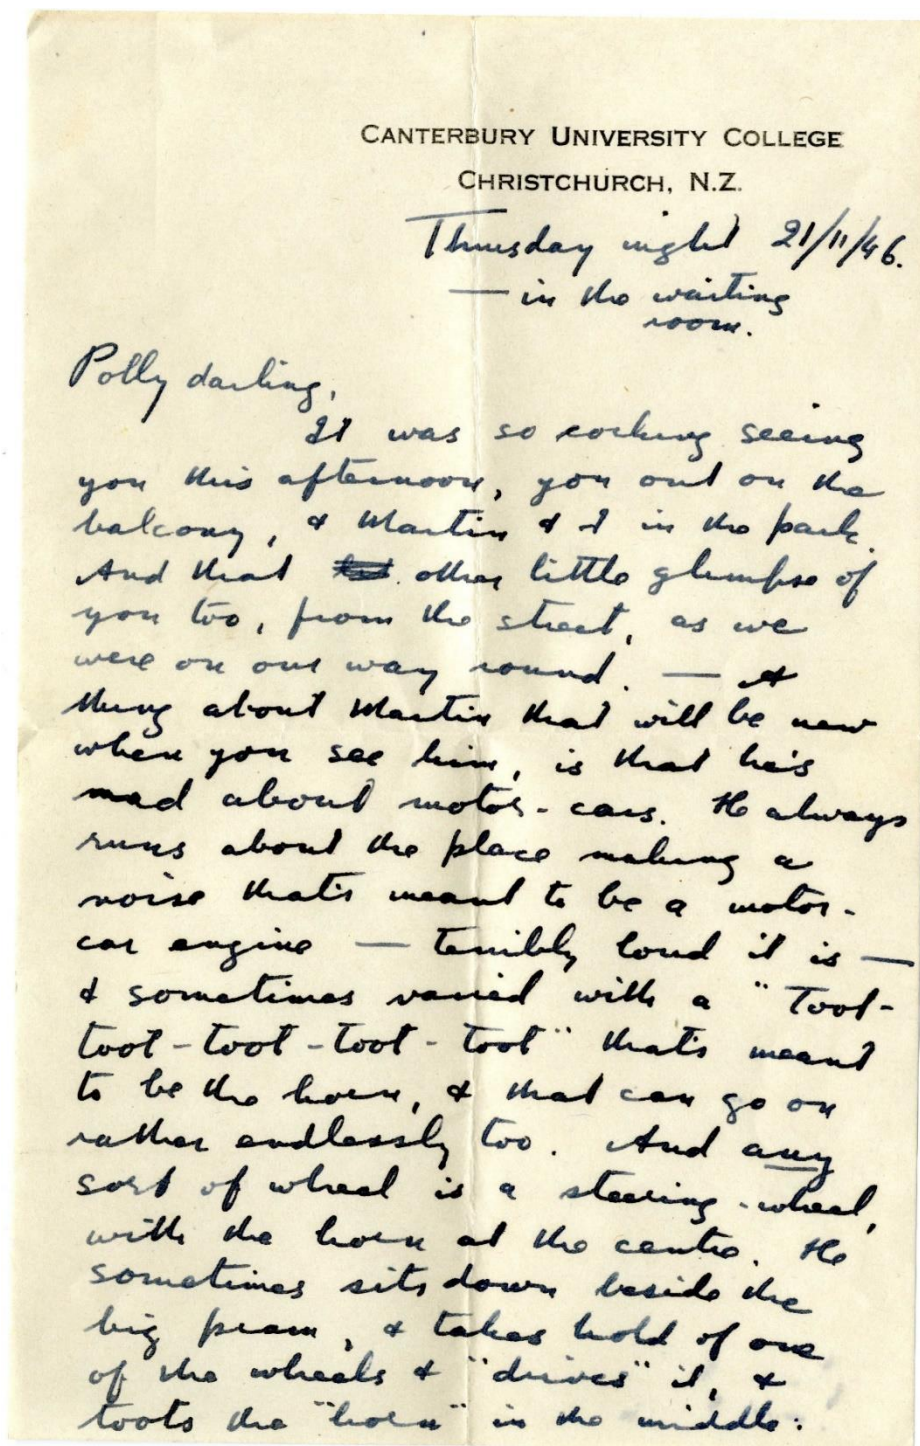 CANTERBURY UNIVERSITY COLLEGE
CHRISTCHURCH, N.Z.
Thursday night 21/11/46.
— in the waiting
room.
Polly darling,
It was so corking seeing
you this afternoon, you out on the
balcony, & Martin & I in the park.
And that other little glimpse of
you too, from the street, as we
were on our way round. — A
thing about Martin that will be new
when you see him, is that he's
mad about motor-cars. He always
runs about the place making a
noise that's meant to be a motor-
car engine — terribly loud it is —
& sometimes varied with a "Toot-
toot-toot-toot-toot" that's meant
to be the horn, & that can go on
rather endlessly too. And any
sort of wheel is a steering-wheel,
with the horn at the centre. He
sometimes sits down beside the
big pram, & takes hold of one
of the wheels & "drives" it, &
toots the "horn" in the middle: